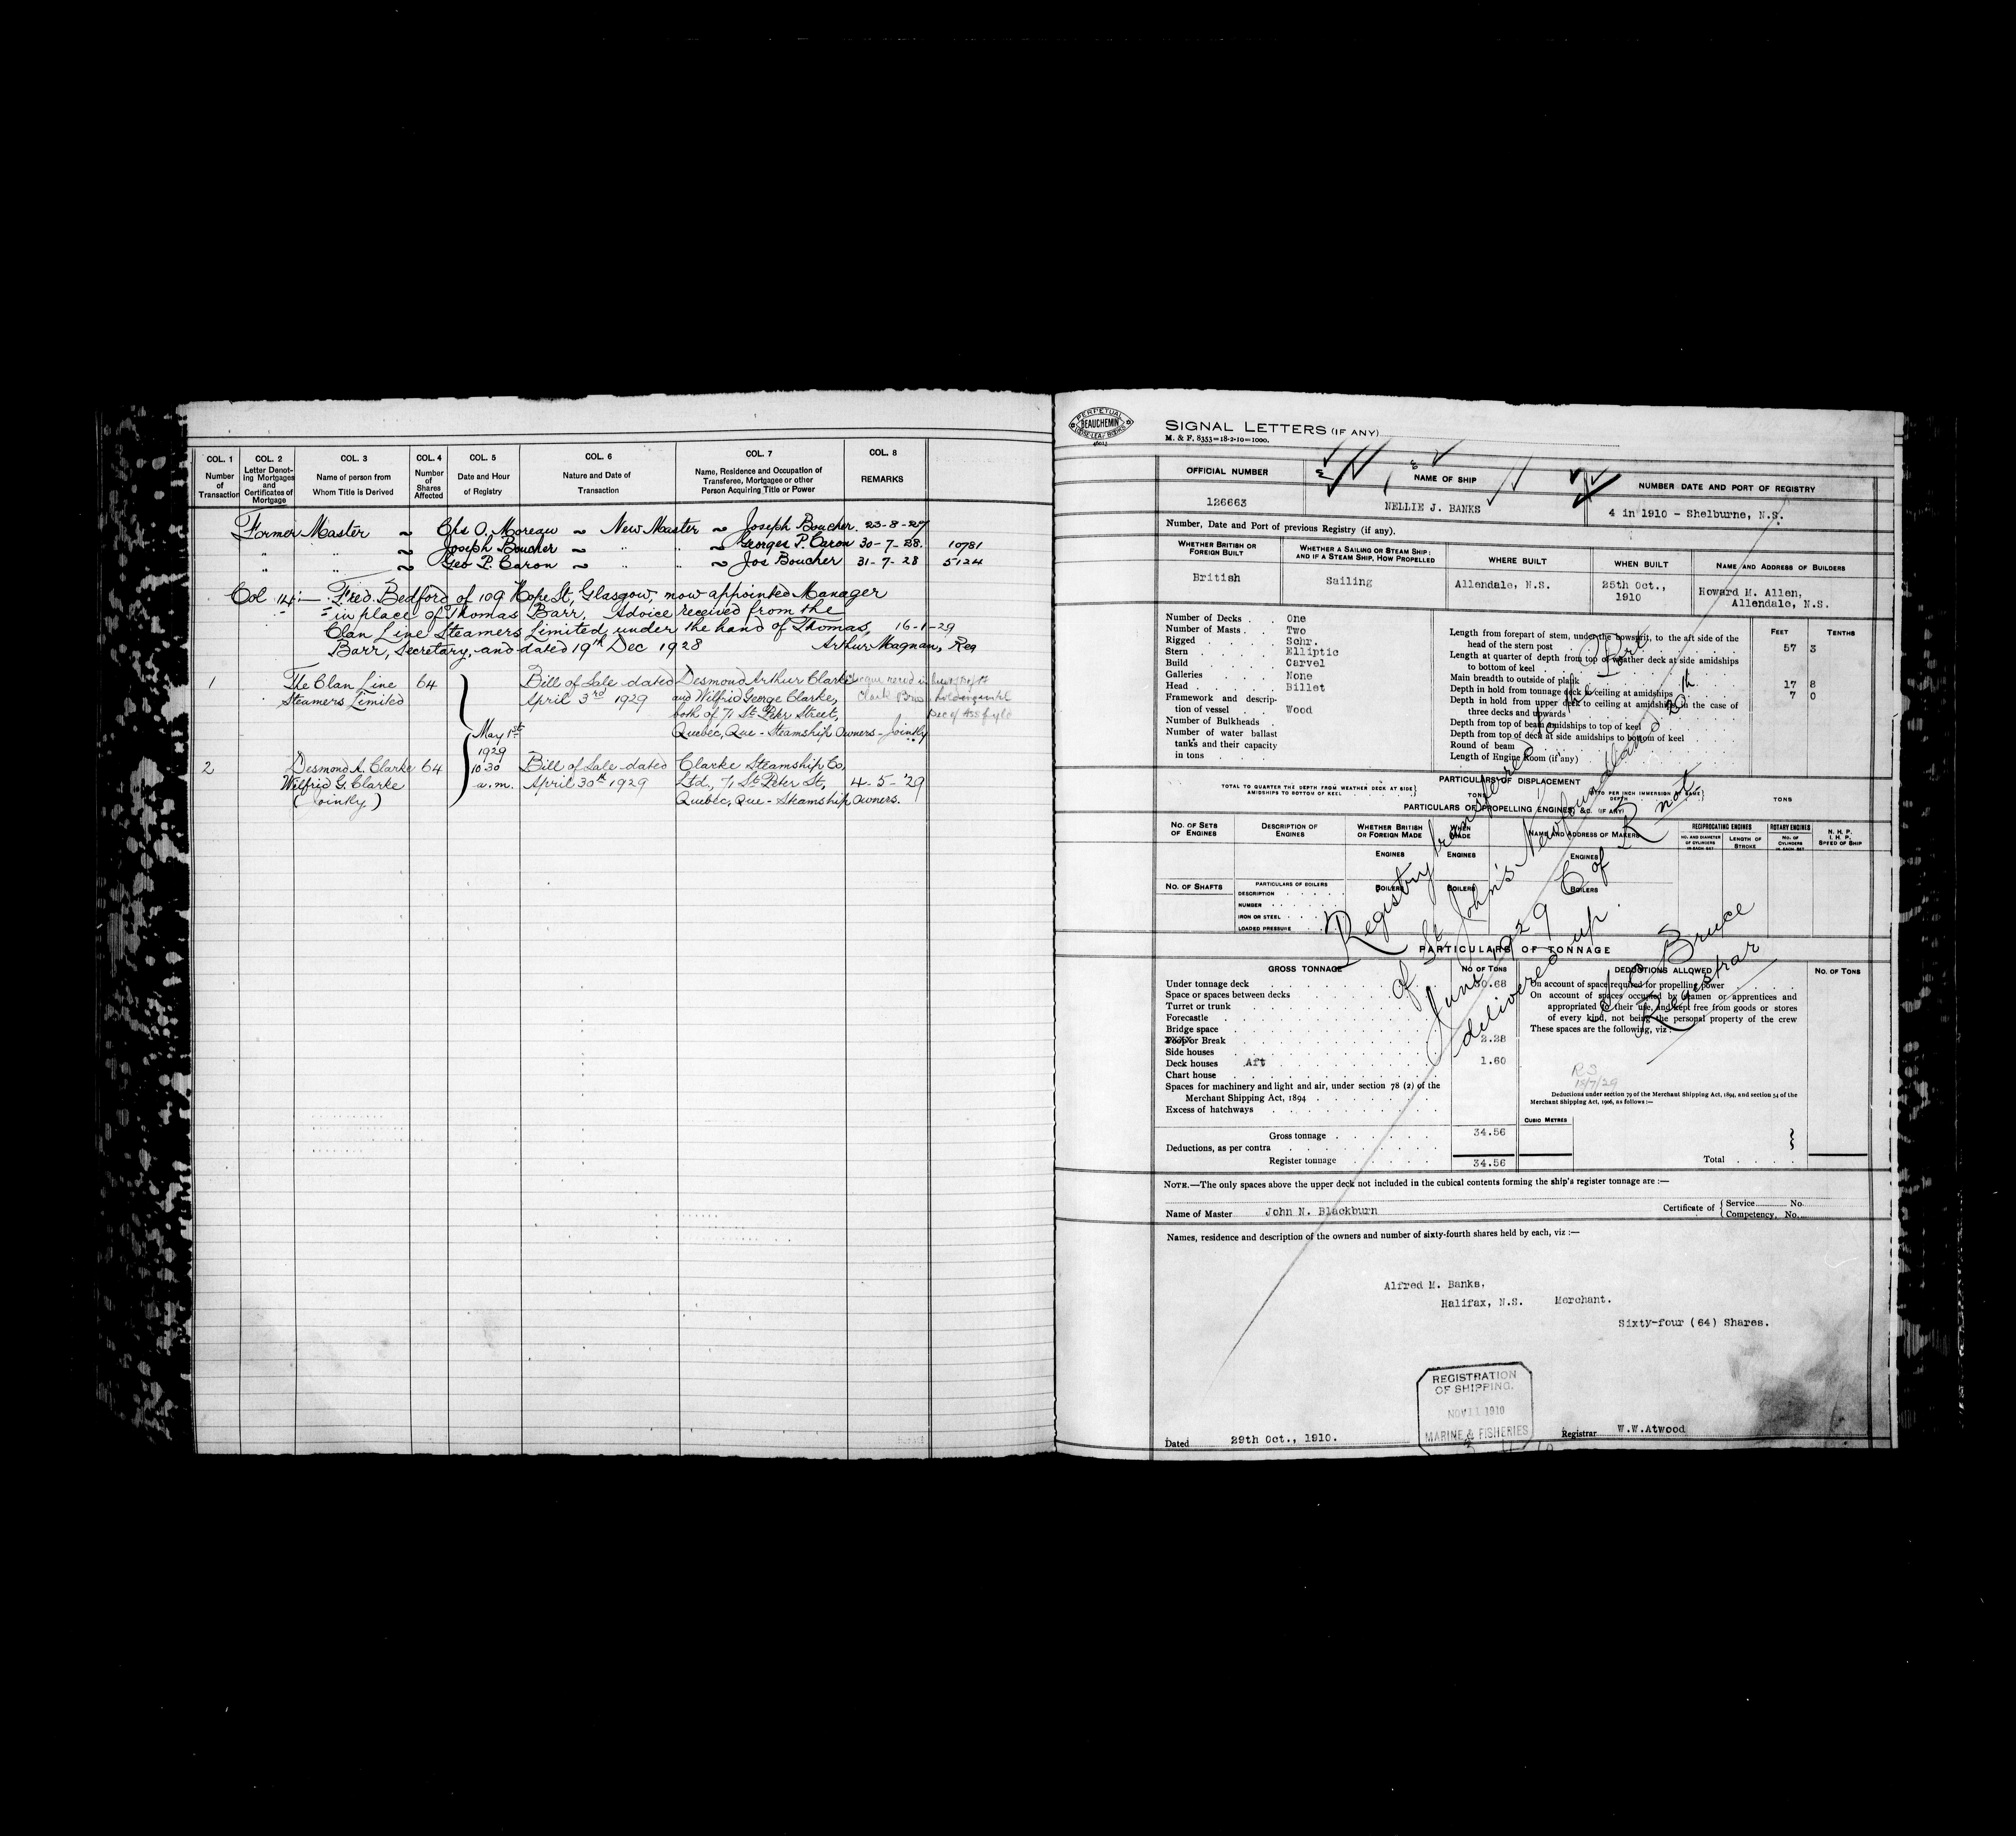 COL. 1 COL. 2 COL. 3 COL. 4 COL. 5 COL. 6 COL. 7 COL. 8
Number of Transaction
Letter Denoting Mortgages and Certificates of Mortgage
Name of person from Whom Title is Derived
Number of Shares Affected
Date and Hour of Registry
Nature and Date of Transaction
Name, Residence and Occupation of Transferee, Mortgagee or other Person Acquiring Title or Power
REMARKS
Former Master ~ Chs O. Moreau ~ New Master ~ Joseph Boucher. 23-8-27
" " ~ Joseph Boucher ~ " " ~ Georges P. Caron 30-7-28. 10781
" " ~ Geo P. Caron ~ " " ~ Jos Boucher 31-7-28 5124
Col 14:— Fred. Bedford of 109 Hope St, Glasgow, now appointed Manager
in place of Thomas Barr, Advice received from the
Clan Line Steamers Limited, under the hand of Thomas, 16-1-29
Barr, Secretary, and dated 19th Dec 1928 Arthur Magnan, Reg
1 The Clan Line 64 Bill of Sale dated Desmond Arthur Clarke
Steamers Limited April 3rd 1929 and Wilfrid George Clarke,
both of 71 St. Peter Street,
Quebec, Que - Steamship Owners - Jointly
May 1st
1929
10 30
a.m.
2 Desmond A. Clarke 64 Bill of Sale dated Clarke Steamship Co,
Wilfrid G. Clarke April 30th 1929 Ltd., 71 St Peter St, 4-5-'29
(Jointly) Quebec, Que - Steamship Owners.
PERPETUAL
BEAUCHEMIN
SIGNAL LETTERS (IF ANY)
M. & F. 8353—18-2-10—1000.
OFFICIAL NUMBER NAME OF SHIP NUMBER DATE AND PORT OF REGISTRY
126663 NELLIE J. BANKS 4 in 1910 - Shelburne, N.S.
Number, Date and Port of previous Registry (if any).
WHETHER BRITISH OR FOREIGN BUILT
WHETHER A SAILING OR STEAM SHIP; AND IF A STEAM SHIP, HOW PROPELLED
WHERE BUILT WHEN BUILT NAME AND ADDRESS OF BUILDERS
British Sailing Allendale, N.S. 25th Oct., 1910 Howard M. Allen,
Allendale, N.S.
Number of Decks One
Number of Masts Two
Rigged Schr.
Stern Elliptic
Build Carvel
Galleries None
Head Billet
Framework and description of vessel Wood
Number of Bulkheads
Number of water ballast
tanks and their capacity
in tons
FEET TENTHS
Length from forepart of stem, under the bowsprit, to the aft side of the
head of the stern post 57 3
Length at quarter of depth from top of weather deck at side amidships
to bottom of keel
Main breadth to outside of plank 17 8
Depth in hold from tonnage deck to ceiling at amidships 7 0
Depth in hold from upper deck to ceiling at amidships, in the case of
three decks and upwards
Depth from top of beam amidships to top of keel
Depth from top of deck at side amidships to bottom of keel
Round of beam
Length of Engine Room (if any)
PARTICULARS OF DISPLACEMENT
TOTAL TO QUARTER THE DEPTH FROM WEATHER DECK AT SIDE
AMIDSHIPS TO BOTTOM OF KEEL TONS DITTO PER INCH IMMERSION AT SAME DEPTH TONS
PARTICULARS OF PROPELLING ENGINES, &C. (IF ANY)
NO. OF SETS OF ENGINES
DESCRIPTION OF ENGINES
WHETHER BRITISH OR FOREIGN MADE
WHEN MADE
NAME AND ADDRESS OF MAKERS
RECIPROCATING ENGINES ROTARY ENGINES
NO. AND DIAMETER OF CYLINDERS IN EACH SET
LENGTH OF STROKE
NO. OF CYLINDERS IN EACH SET
N. H. P.
I. H. P.
SPEED OF SHIP
ENGINES ENGINES ENGINES
NO. OF SHAFTS
PARTICULARS OF BOILERS
DESCRIPTION
NUMBER
IRON OR STEEL
LOADED PRESSURE
BOILERS BOILERS BOILERS
Registry transferred to the Port
of St. John's Newfoundland 20th
June 1929 C of R not
delivered up.
Bruce
Registrar
PARTICULARS OF TONNAGE
GROSS TONNAGE NO. OF TONS
Under tonnage deck 30.68
Space or spaces between decks
Turret or trunk
Forecastle
Bridge space
Poop or Break 2.28
Side houses
Deck houses Aft 1.60
Chart house
Spaces for machinery and light and air, under section 78 (2) of the
Merchant Shipping Act, 1894
Excess of hatchways
Gross tonnage 34.56
Deductions, as per contra
Register tonnage 34.56
DEDUCTIONS ALLOWED NO. OF TONS
On account of space required for propelling power
On account of spaces occupied by seamen or apprentices and
appropriated to their use, and kept free from goods or stores
of every kind, not being the personal property of the crew
These spaces are the following, viz :
R S
15/7/29
Deductions under section 79 of the Merchant Shipping Act, 1894, and section 54 of the
Merchant Shipping Act, 1906, as follows :—
CUBIC METRES
Total
NOTE.—The only spaces above the upper deck not included in the cubical contents forming the ship's register tonnage are :—
Name of Master John N. Blackburn
Certificate of Service No.
Competency, No.
Names, residence and description of the owners and number of sixty-fourth shares held by each, viz :—
Alfred M. Banks.
Halifax, N.S. Merchant.
Sixty-four (64) Shares.
REGISTRATION
OF SHIPPING.
NOV 11 1910
MARINE & FISHERIES
Dated 29th Oct., 1910. Registrar W.W.Atwood